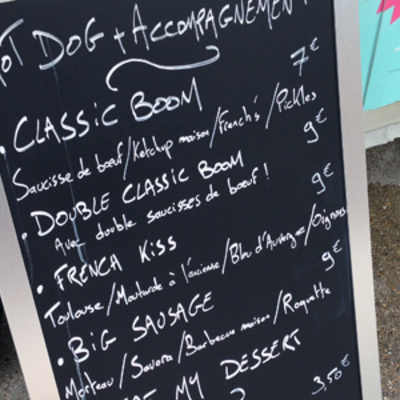 OT DOG + ACCOMPAGNEMENT
• CLASSIC BOOM 7€
Saucisse de bœuf/Ketchup maison/French's/Pickles
• DOUBLE CLASSIC BOOM 9€
Avec double saucisses de bœuf !
• FRENCH KISS 9€
Toulouse/Moutarde à l'ancienne/Bleu d'Auvergne/Oignons
• BIG SAUSAGE 9€
Morteau/Savora/Barbecue maison/Roquette
MY DESSERT
3,50€